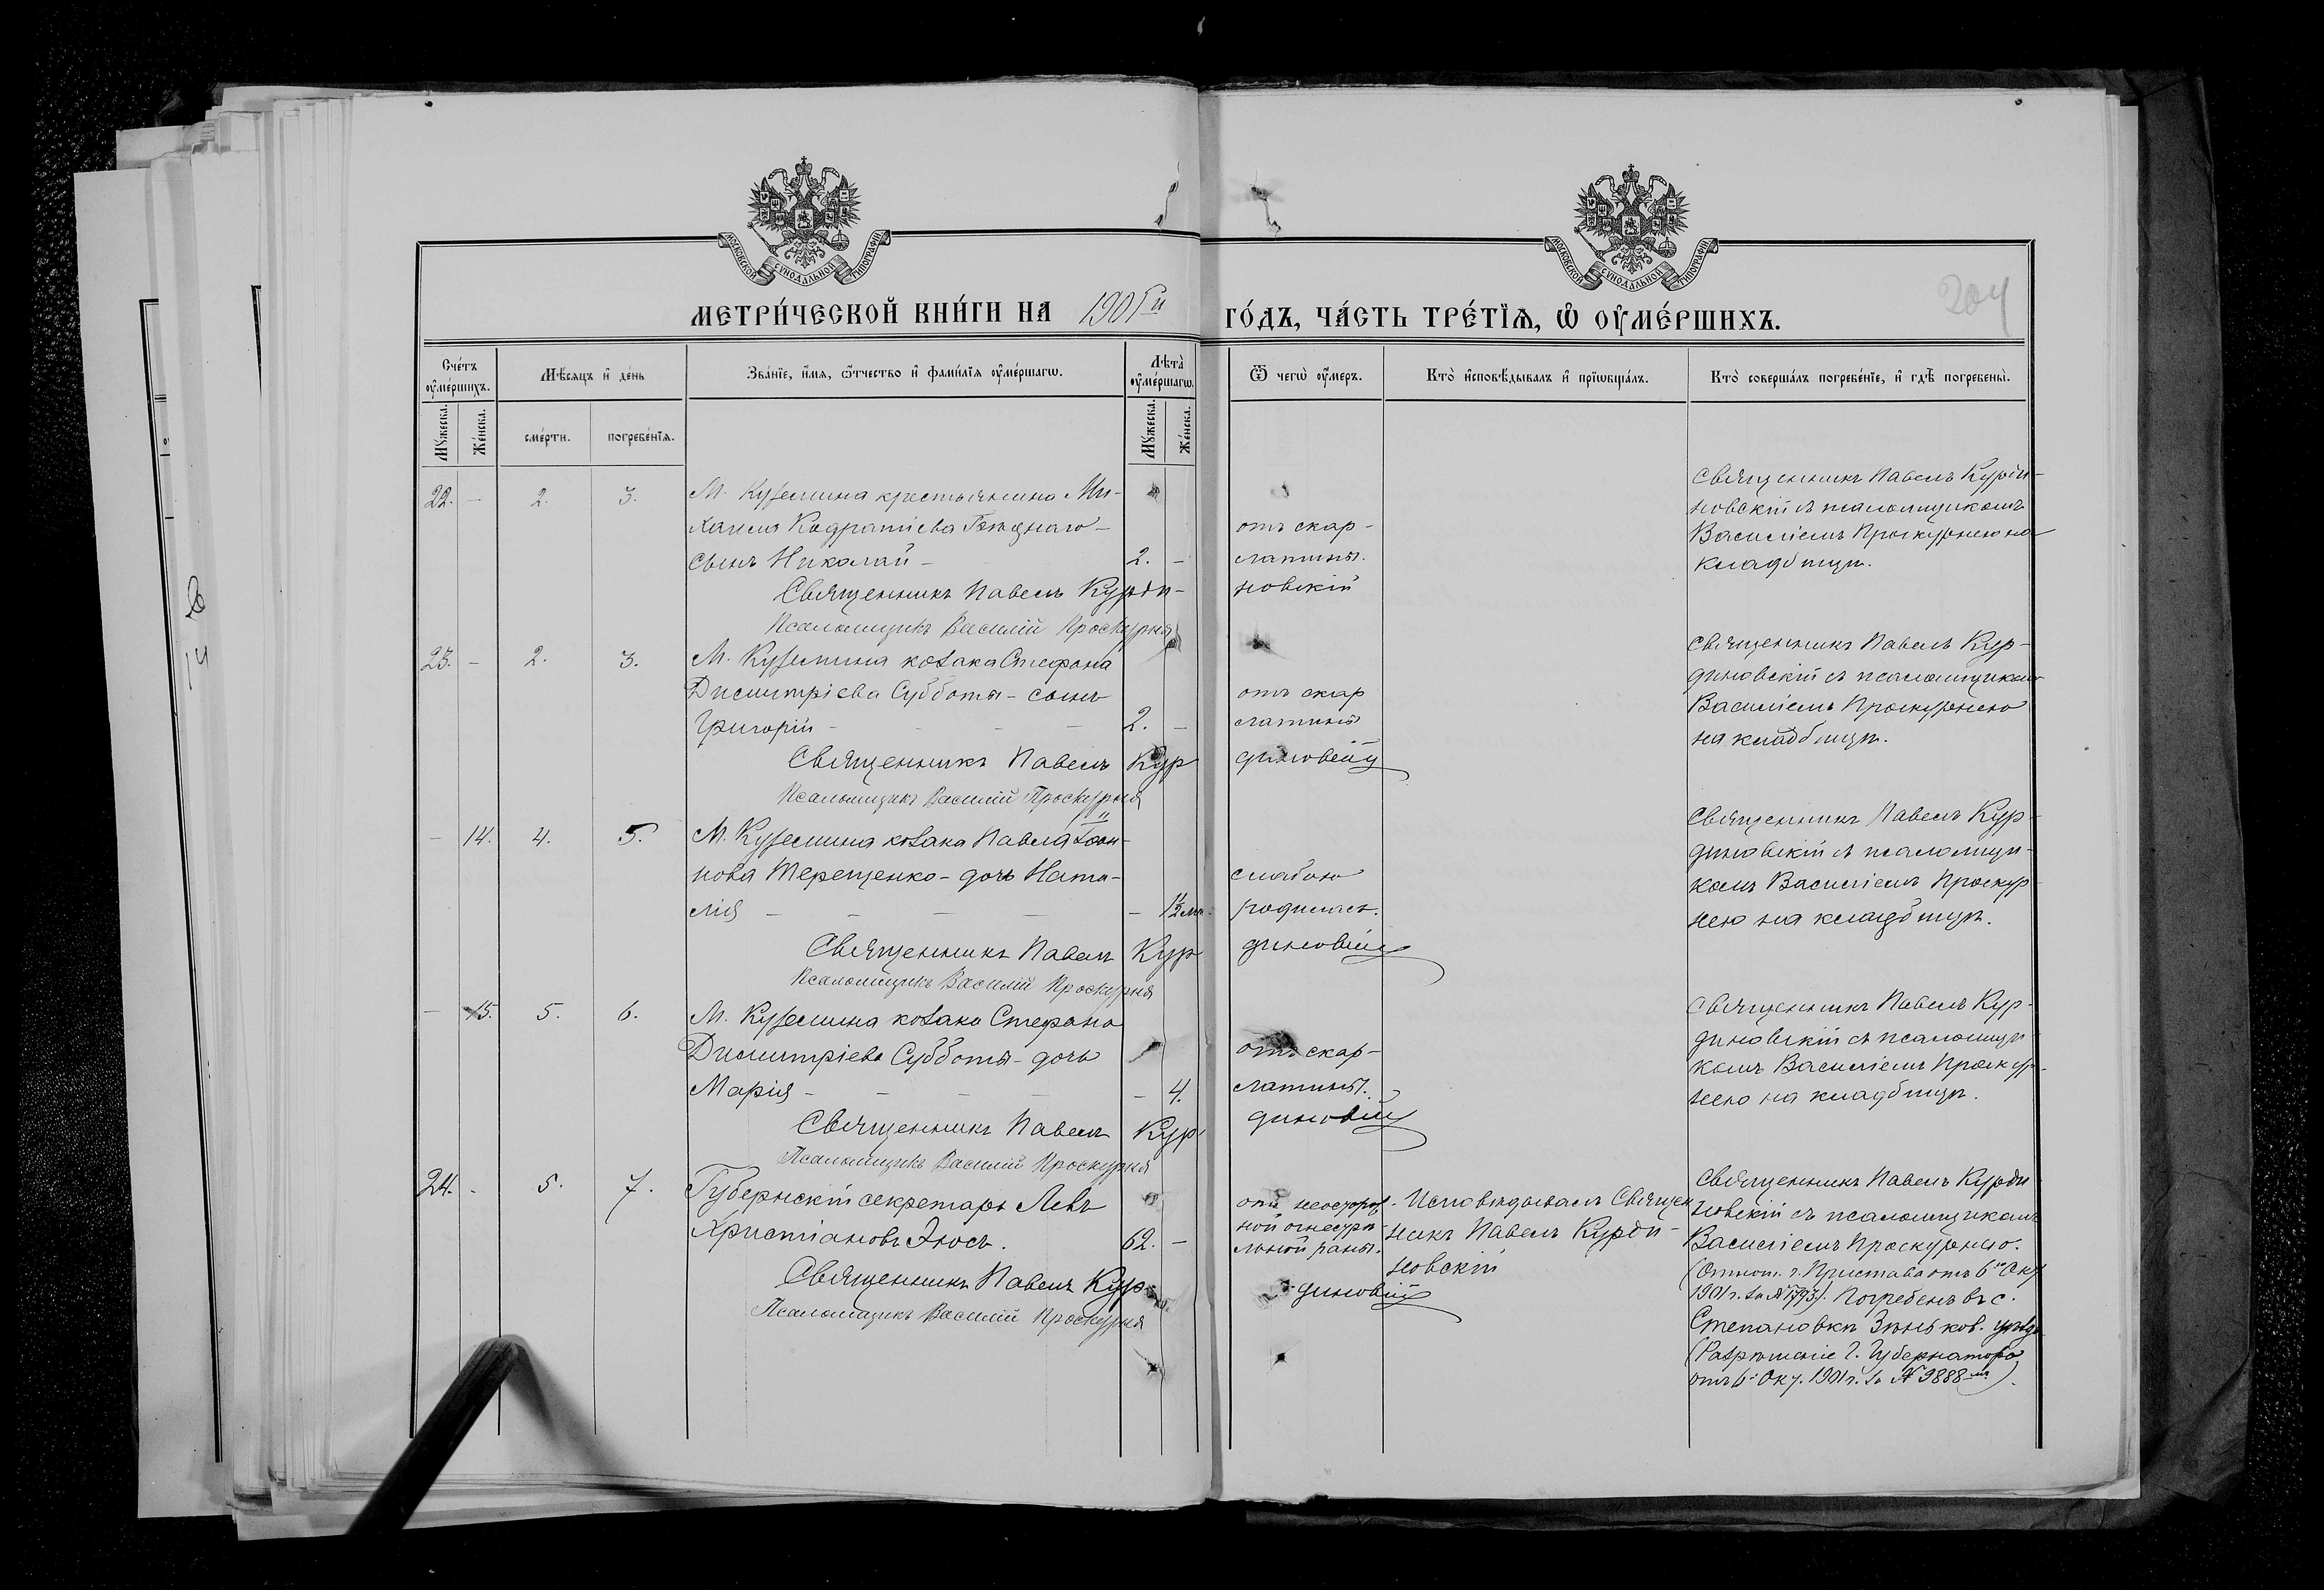 МОСКОВСКОЙ СУНОДАЛЬНОЙ ТИПОГРАФІИ
МОСКОВСКОЙ СУНОДАЛЬНОЙ ТИПОГРАФІИ
МЕТРИ́ЧЕСКОЙ КНИ́ГИ НА 1901й ГО́ДЪ, ЧА́СТЬ ТРЕ́ТІѦ, Ѡ ОУМЕ́РШИХЪ.
204
Сче́тъ оумершихъ.
Мѣсяцъ и день
Зва́нїе, и҆́мя, ѿтчество и҆ фами́лїя оуме́ршагѡ.
Лѣта оумершагѡ.
Ѿ чегѡ̀ оумеръ.
Кто̀ и҆сповѣ́дывалъ и҆ прїѡбща́лъ.
Кто̀ соверша́лъ погребе́нїе, и҆ гдѣ̀ погребены̀.
Мꙋжеска.
Же́нска.
сме́рти.
погребе́нїя.
Мꙋжеска.
Же́нска.
22. - 2. 3.
М. Куземина крестьянина Ми-
хаила Кодратіева
сынъ Николай - 2. -
Священникъ Павелъ Курди-
Псаломщикъ Василій Проскурня
отъ скар-
латины.
новскій
Священникъ Павелъ Курди-
новскій съ псаломщикомъ
Василіемъ Проскурнею на
кладбищѣ.
23. - 2. 3.
М. Куземина козака Стефана
Димитріева Субботы - сынъ
Григорій - 2. -
Священникъ Павелъ Кур
Псаломщикъ Василій Проскурня
отъ скар
латины
диновскій
Священникъ Павелъ Кур-
диновскій съ псаломщикомъ
Василіемъ Проскурнею
на кладбищѣ.
- 14. 4. 5.
М. Куземина козака Павла Іоан-
нова Терещенко - дочь Ната-
лія - - - - - 1½ м.
Священникъ Павелъ Кур
Псаломщикъ Василій Проскурня
слабою
родилась.
диновскій
Священникъ Павелъ Кур-
диновскій съ псаломщи-
комъ Василіемъ Проскур-
нею на кладбищѣ.
- 15. 5. 6.
М. Куземина козака Стефана
Димитріева Субботы - дочь
Марія - - - - - 4.
Священникъ Павелъ Кур
Псаломщикъ Василій Проскурня
отъ скар-
латины.
диновскій
Священникъ Павелъ Кур-
диновскій съ псаломщи-
комъ Василіемъ Проскур-
нею на кладбищѣ.
24. - 5. 7.
Губернскій секретарь Левъ
Христіановъ Энюсъ. 62. -
Священникъ Павелъ Кур-
Псаломщикъ Василій Проскурня
отъ неосторож-
ной огнестрѣ-
льной раны.
диновскій
Исповѣдывалъ Священ
никъ Павелъ Курди-
новскій
Священникъ Павелъ Курди
новскій съ псаломщикомъ
Василіемъ Проскурнею.
(Отнош. г. Пристава отъ 6го Окт.
1901 г. за № Погребенъ въ с.
Степановкѣ Зѣньков. уѣзда
(Разрѣшеніе Г. Губернатора
отъ 6 Окт. 1901 г. за № 9888-мъ).